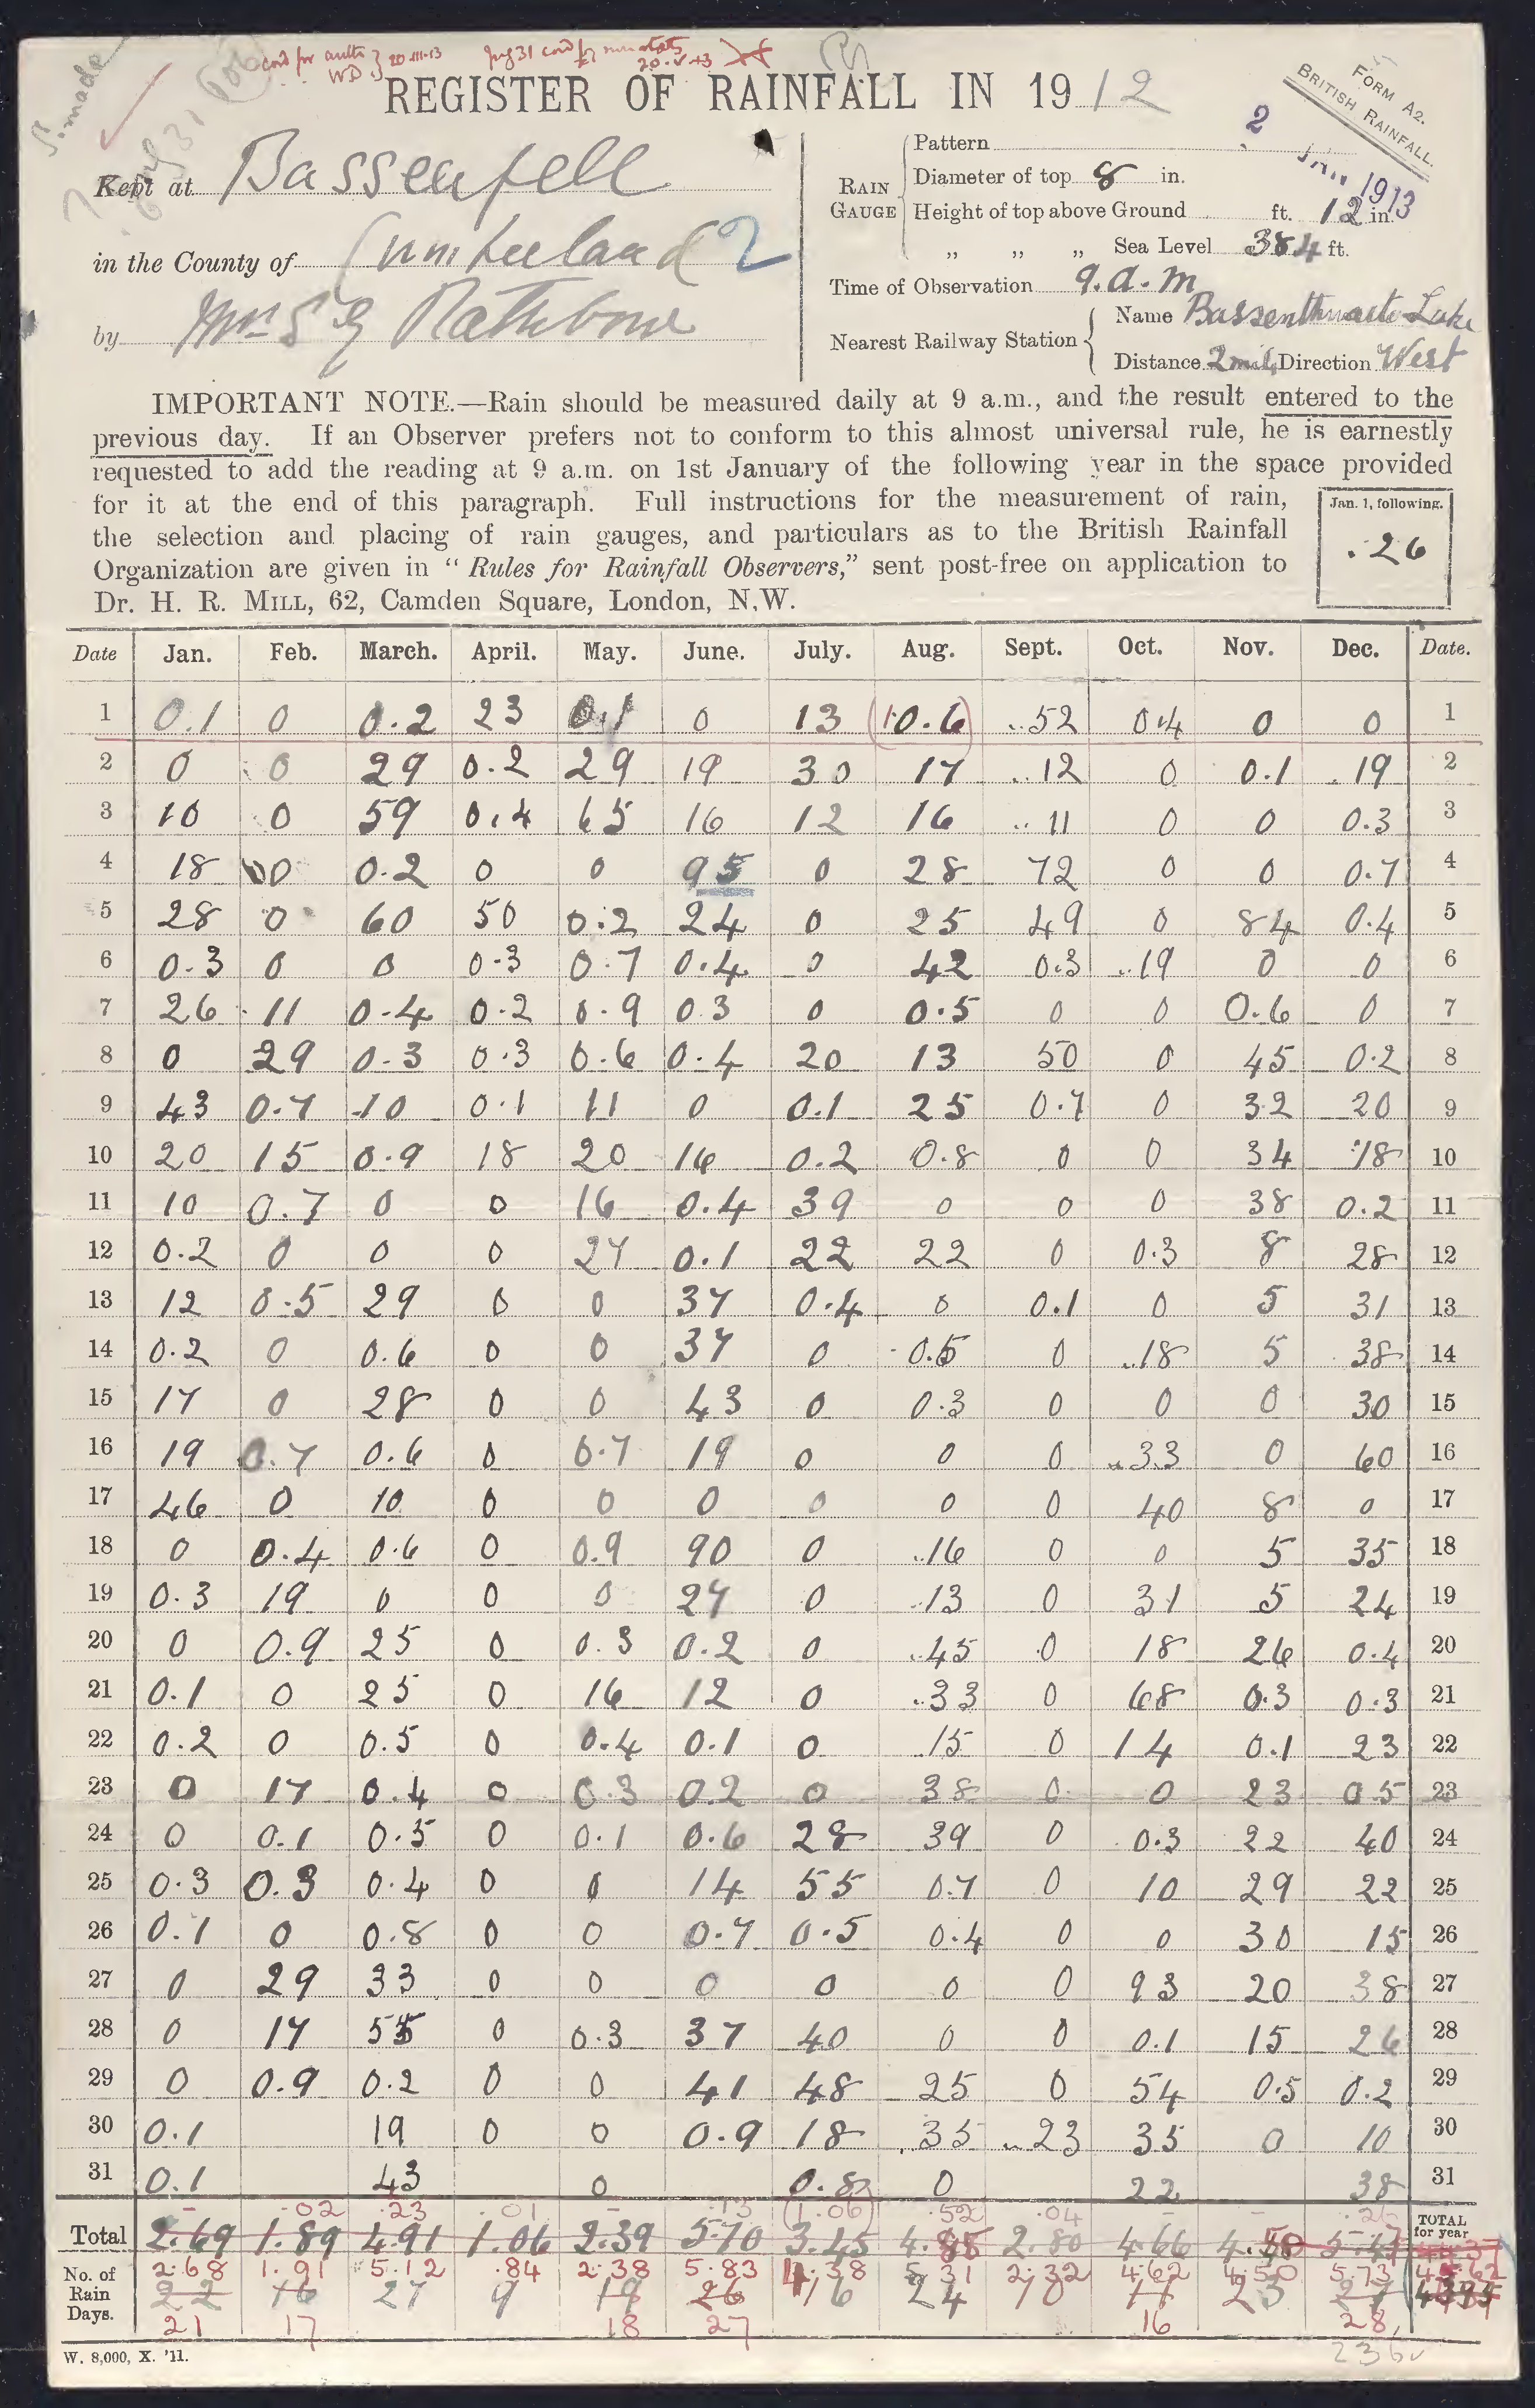 REGISTER OF RAINFALL IN 1912
FORM A2.
BRITISH RAINFALL.
2 JAN 1913
Kept at Bassenfell
in the County of Cumberland 2
by Mrs Rathbone
RAIN GAUGE
Pattern
Diameter of top 8 in.
Height of top above Ground ft. 12 in.
„ „ „ Sea Level 384 ft.
Time of Observation 9.a.m
Nearest Railway Station
Name Bassenthwaite Lake
Distance 2 mils Direction West
IMPORTANT NOTE.—Rain should be measured daily at 9 a.m., and the result entered to the
previous day. If an Observer prefers not to conform to this almost universal rule, he is earnestly
requested to add the reading at 9 a.m. on 1st January of the following year in the space provided
for it at the end of this paragraph. Full instructions for the measurement of rain,
the selection and placing of rain gauges, and particulars as to the British Rainfall
Organization are given in “Rules for Rainfall Observers,” sent post-free on application to
Dr. H. R. MILL, 62, Camden Square, London, N.W.
Jan. 1, following.
.26
Date Jan. Feb. March. April. May. June. July. Aug. Sept. Oct. Nov. Dec. Date.
1 0.1 0 0.2 23 0.1 0 13 10.6 ..52 0.4 0 0 1
2 0 0 29 0.2 29 19 30 17 ..12 0 0.1 .19 2
3 10 0 59 0.4 65 16 12 16 ..11 0 0 0.3 3
4 18 0 0.2 0 0 95 0 28 72 0 0 0.7 4
5 28 0 60 50 0.2 24 0 25 49 0 84 0.4 5
6 0.3 0 0 0.3 0.7 0.4 0 42 0.3 ..19 0 0 6
7 26 11 0.4 0.2 0.9 0.3 0 0.5 0 0 0.6 0 7
8 0 29 0.3 0.3 0.6 0.4 20 13 50 0 45 0.2 8
9 43 0.7 10 0.1 11 0 0.1 25 0.7 0 32 20 9
10 20 15 0.9 18 20 16 0.2 0.8 0 0 34 18 10
11 10 0.7 0 0 16 0.4 39 0 0 0 38 0.2 11
12 0.2 0 0 0 27 0.1 22 22 0 0.3 8 28 12
13 12 0.5 29 0 0 37 0.4 0 0.1 0 5 31 13
14 0.2 0 0.6 0 0 37 0 0.5 0 ..18 5 38 14
15 17 0 28 0 0 43 0 0.3 0 0 0 30 15
16 19 0.7 0.6 0 0.7 19 0 0 0 ..33 0 60 16
17 46 0 10 0 0 0 0 0 0 40 8 0 17
18 0 0.4 0.6 0 0.9 90 0 ..16 0 0 5 35 18
19 0.3 19 0 0 0 27 0 ..13 0 31 5 24 19
20 0 0.9 25 0 0.3 0.2 0 ..45 0 18 26 0.4 20
21 0.1 0 25 0 16 12 0 ..33 0 68 0.3 0.3 21
22 0.2 0 0.5 0 0.4 0.1 0 .15 0 14 0.1 23 22
23 0 17 0.4 0 0.3 0.2 0 38 0 0 23 0.5 23
24 0 0.1 0.5 0 0.1 0.6 28 39 0 0.3 22 40 24
25 0.3 0.3 0.4 0 0 14 55 0.7 0 10 29 22 25
26 0.1 0 0.8 0 0 0.7 0.5 0.4 0 0 30 15 26
27 0 29 33 0 0 0 0 0 0 93 20 38 27
28 0 17 55 0 0.3 37 40 0 0 0.1 15 26 28
29 0 0.9 0.2 0 0 41 48 25 0 54 0.5 0.2 29
30 0.1 19 0 0 0.9 18 .35 ..23 35 0 10 30
31 0.1 43 0 0.8 0 22 38 31
- .02 .23 .01 - .13 (1.06) .52 .04 - - .26 TOTAL for year
Total 2.69 1.89 4.91 1.06 2.39 5.70 3.45 2.80 4.66 5.47
2.68 1.91 5.12 .84 2.38 5.83 4.38 5.31 2.32 4.62 4.50 5.73
No. of Rain Days. 22 16 27 9 19 26 16 24 10 23 27
21 17 18 27 16 28
236
W. 8,000, X. '11.